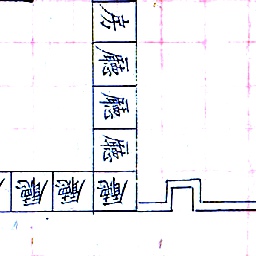 房
廳
廳
廳
廳 廳 廳